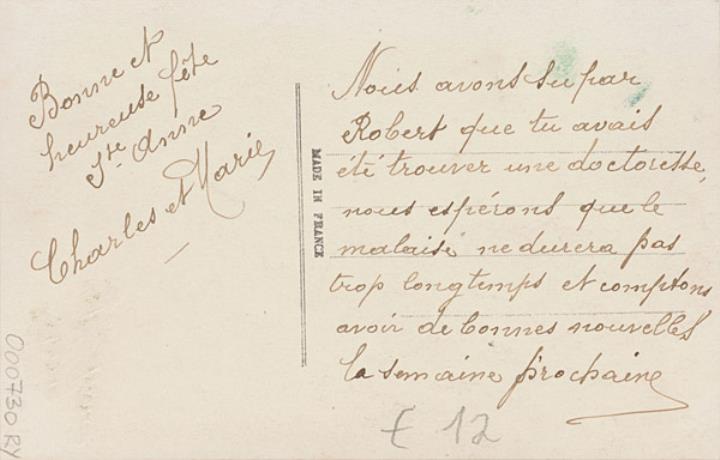 Bonne et
heureuse fête
Ste Anne
Charles et Marie
MADE IN FRANCE
Nous avons su par
Robert que tu avais
été trouver une doctoresse,
nous espérons que le
malaise ne durera pas
trop longtemps et comptons
avoir de bonnes nouvelles
la semaine prochaine
£ 12
000730 RY